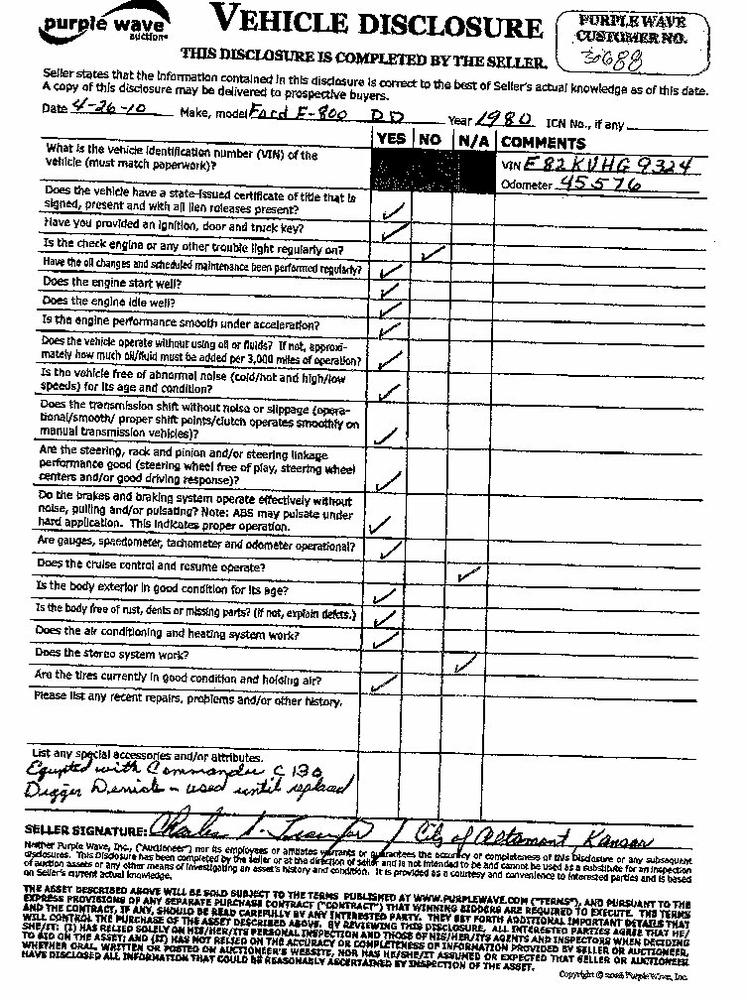 purple wave
auction
VEHICLE DISCLOSURE
PURPLE WAVE
CUSTOMER NO.
30688
THIS DISCLOSURE IS COMPLETED BY THE SELLER.
Seller states that the information contained in this disclosure is correct to the best of Seller's actual knowledge as of this date.
A copy of this disclosure may be delivered to prospective buyers.
Date 4-26-10 Make, model Ford F-800 DD Year 1980 ICN No., if any
YES NO N/A COMMENTS
What is the vehicle identification number (VIN) of the
vehicle (must match paperwork)?
VIN F82KVHG9324
Odometer 45576
Does the vehicle have a state-issued certificate of title that is
signed, present and with all lien releases present?
Have you provided an ignition, door and truck key?
Is the check engine or any other trouble light regularly on?
Have the oil changes and scheduled maintenance been performed regularly?
Does the engine start well?
Does the engine idle well?
Is the engine performance smooth under acceleration?
Does the vehicle operate without using oil or fluids? If not, approxi-
mately how much oil/fluid must be added per 3,000 miles of operation?
Is the vehicle free of abnormal noise (cold/hot and high/low
speeds) for its age and condition?
Does the transmission shift without noise or slippage (opera-
tional/smooth/ proper shift points/clutch operates smoothly on
manual transmission vehicles)?
Are the steering, rack and pinion and/or steering linkage
performance good (steering wheel free of play, steering wheel
centers and/or good driving response)?
Do the brakes and braking system operate effectively without
noise, pulling and/or pulsating? Note: ABS may pulsate under
hard application. This indicates proper operation.
Are gauges, speedometer, tachometer and odometer operational?
Does the cruise control and resume operate?
Is the body exterior in good condition for its age?
Is the body free of rust, dents or missing parts? (If not, explain defects.)
Does the air conditioning and heating system work?
Does the stereo system work?
Are the tires currently in good condition and holding air?
Please list any recent repairs, problems and/or other history.
List any special accessories and/or attributes.
Equpted with Commander C 130
Digger Derrick - used until replaced
SELLER SIGNATURE: Charles / City of Altamont, Kansas
Neither Purple Wave, Inc., ("Auctioneer") nor its employees of affiliates warrants or guarantees the accuracy or completeness of this Disclosure or any subsequent
disclosures. This Disclosure has been completed by the seller or at the direction of seller and is not intended to be and cannot be used as a substitute for an inspection
of auction assets or any other means of investigating an asset's history and condition. It is provided as a courtesy and convenience to interested parties and is based
on Seller's current actual knowledge.
THE ASSET DESCRIBED ABOVE WILL BE SOLD SUBJECT TO THE TERMS PUBLISHED AT WWW.PURPLEWAVE.COM ("TERMS"), AND PURSUANT TO THE
EXPRESS PROVISIONS OF ANY SEPARATE PURCHASE CONTRACT ("CONTRACT") THAT WINNING BIDDERS ARE REQUIRED TO EXECUTE. THE TERMS
AND THE CONTRACT, IF ANY, SHOULD BE READ CAREFULLY BY ANY INTERESTED PARTY. THEY SET FORTH ADDITIONAL IMPORTANT DETAILS THAT
WILL CONTROL THE PURCHASE OF THE ASSET DESCRIBED ABOVE. BY REVIEWING THIS DISCLOSURE, ALL INTERESTED PARTIES AGREE THAT HE/
SHE/IT: (I) HAS RELIED SOLELY ON HIS/HER/ITS PERSONAL INSPECTION AND THOSE OF HIS/HER/ITS AGENTS AND INSPECTORS WHEN DECIDING
TO BID ON THE ASSET; AND (II) HAS NOT RELIED ON THE ACCURACY OR COMPLETENESS OF INFORMATION PROVIDED BY SELLER OR AUCTIONEER,
WHETHER ORAL, WRITTEN OR POSTED ON AUCTIONEER'S WEBSITE, NOR HAS HE/SHE/IT ASSUMED OR EXPECTED THAT SELLER OR AUCTIONEER
HAVE DISCLOSED ALL INFORMATION THAT COULD BE REASONABLY ASCERTAINED BY INSPECTION OF THE ASSET.
Copyright © Purple Wave, Inc.